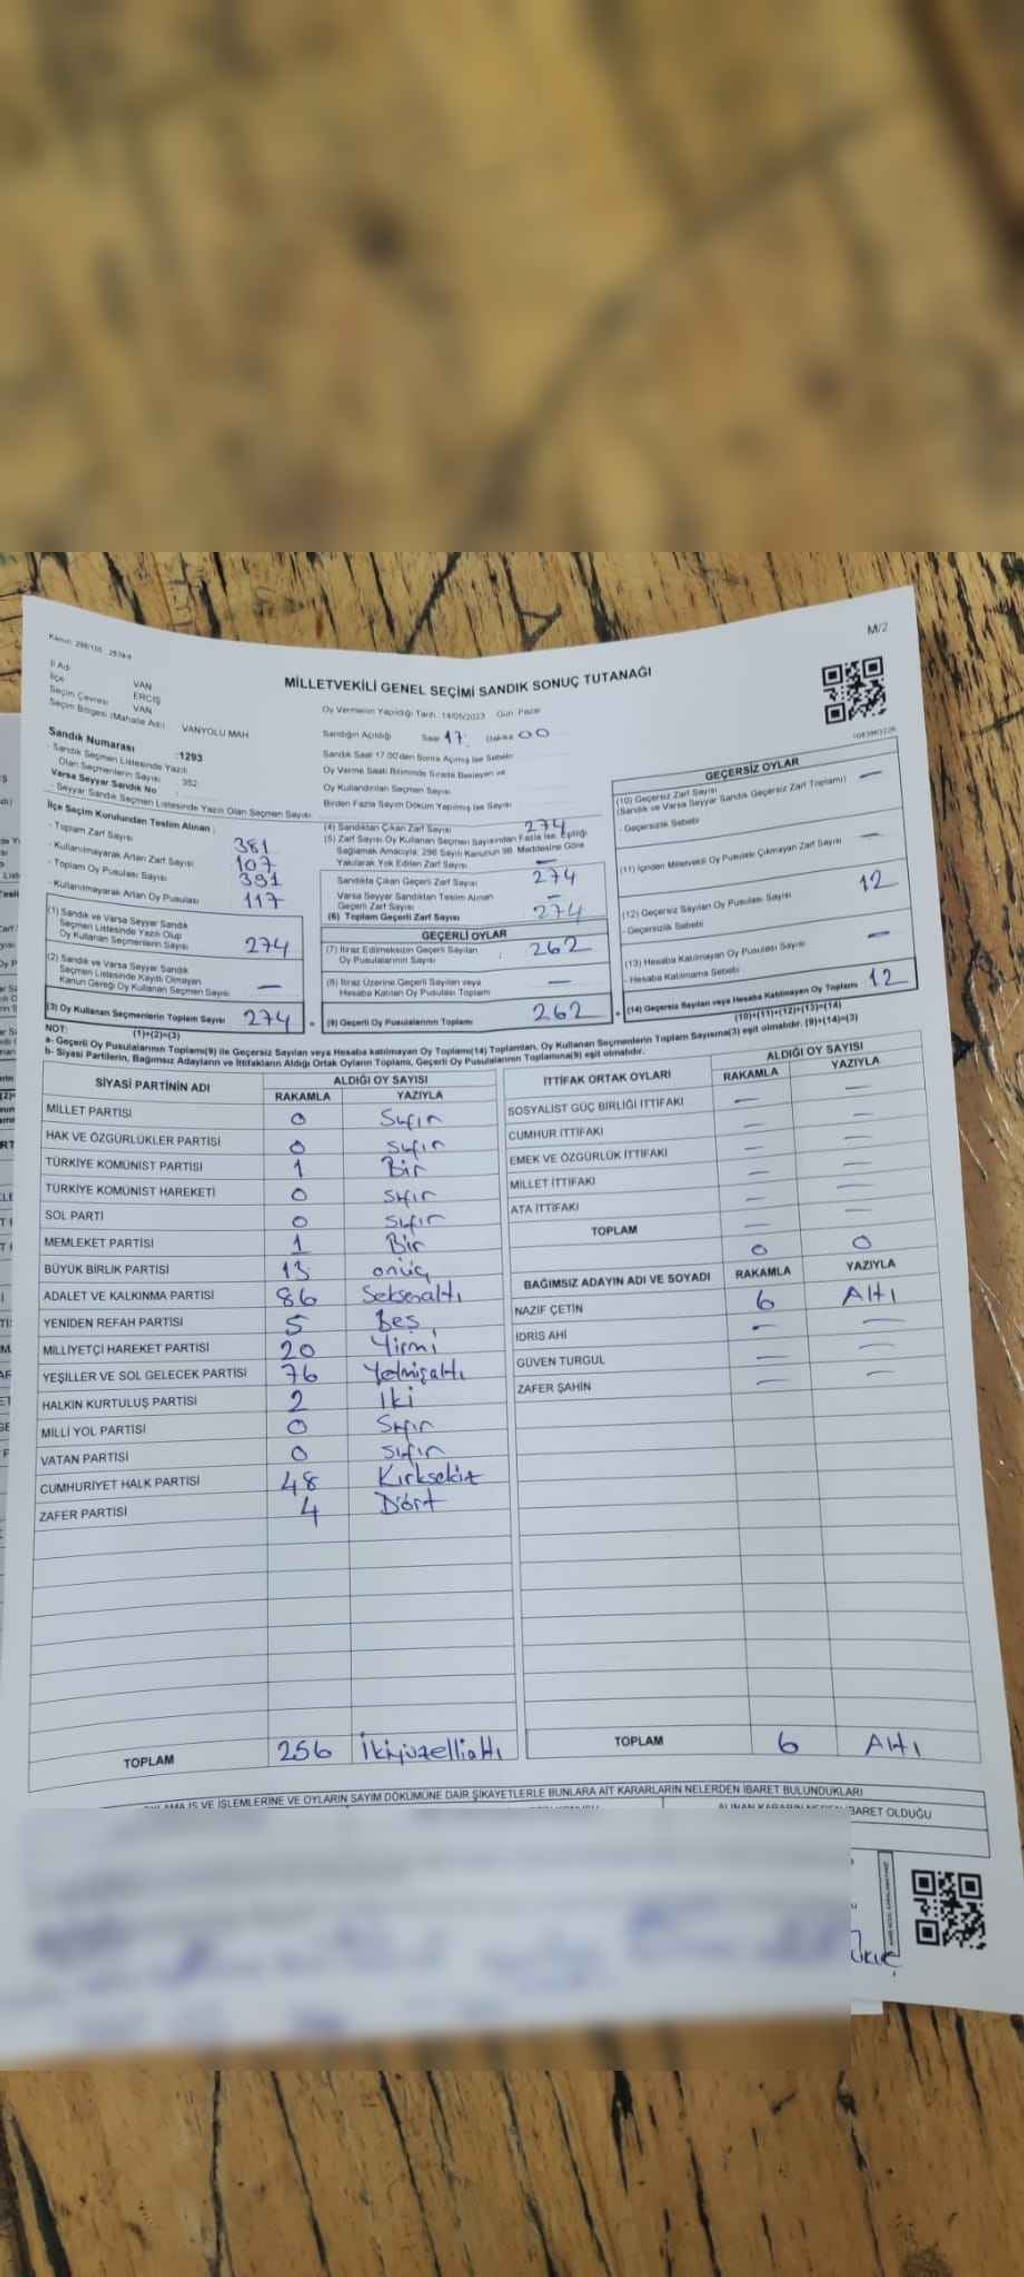 M/2
MİLLETVEKİLİ GENEL SEÇİMİ SANDIK SONUÇ TUTANAĞI
İl Adı VAN
İlçe ERCİŞ
Seçim Çevresi VAN
Seçim Bölgesi (Mahalle Adı) VANYOLU MAH
Oy Vermenin Yapıldığı Tarih : 14/05/2023 Gün: Pazar
Sandığın Açıldığı Saat 17 Dakika 00
Sandık Numarası :1293
Sandık Seçmen Listesinde Yazılı
Olan Seçmenlerin Sayısı : 352
Varsa Seyyar Sandık No :
Seyyar Sandık Seçmen Listesinde Yazılı Olan Seçmen Sayısı
Sandık Saat 17.00'den Sonra Açılmış İse Sebebi
Oy Verme Saati Bitiminde Sırada Bekleyen ve
Oy Kullandırılan Seçmen Sayısı
Birden Fazla Sayım Döküm Yapılmış İse Sayısı
İlçe Seçim Kurulundan Teslim Alınan :
- Toplam Zarf Sayısı 381
- Kullanılmayarak Artan Zarf Sayısı 107
- Toplam Oy Pusulası Sayısı 391
- Kullanılmayarak Artan Oy Pusulası 117
(1) Sandık ve Varsa Seyyar Sandık
Seçmen Listesinde Yazılı Olup
Oy Kullanan Seçmenlerin Sayısı 274
(2) Sandık ve Varsa Seyyar Sandık
Seçmen Listesinde Kayıtlı Olmayan
Kanun Gereği Oy Kullanan Seçmen Sayısı —
(3) Oy Kullanan Seçmenlerin Toplam Sayısı 274
(1)+(2)=(3)
(4) Sandıktan Çıkan Zarf Sayısı 274
(5) Zarf Sayısı Oy Kullanan Seçmen Sayısından Fazla İse, Eşitliği
Sağlamak Amacıyla, 298 Sayılı Kanunun 98. Maddesine Göre
Yakılarak Yok Edilen Zarf Sayısı —
Sandıkta Çıkan Geçerli Zarf Sayısı 274
Varsa Seyyar Sandıktan Teslim Alınan
Geçerli Zarf Sayısı —
(6) Toplam Geçerli Zarf Sayısı 274
GEÇERLİ OYLAR
(7) İtiraz Edilmeksizin Geçerli Sayılan
Oy Pusulalarının Sayısı : 262
(8) İtiraz Üzerine Geçerli Sayılan veya
Hesaba Katılan Oy Pusulası Toplamı —
(9) Geçerli Oy Pusulalarının Toplamı 262
GEÇERSİZ OYLAR
(10) Geçersiz Zarf Sayısı —
(Sandık ve Varsa Seyyar Sandık Geçersiz Zarf Toplamı)
- Geçersizlik Sebebi
(11) İçinden Milletvekili Oy Pusulası Çıkmayan Zarf Sayısı —
(12) Geçersiz Sayılan Oy Pusulası Sayısı 12
- Geçersizlik Sebebi
(13) Hesaba Katılmayan Oy Pusulası Sayısı —
- Hesaba Katılmama Sebebi
(14) Geçersiz Sayılan veya Hesaba Katılmayan Oy Pusulası Toplamı 12
(10)+(11)+(12)+(13)=(14)
NOT:
a- Geçerli Oy Pusulalarının Toplamı(9) ile Geçersiz Sayılan veya Hesaba katılmayan Oy Toplamı(14) Toplamları, Oy Kullanan Seçmenlerin Toplam Sayısına(3) eşit olmalıdır. (9)+(14)=(3)
b- Siyasi Partilerin, Bağımsız Adayların ve İttifakların Aldığı Ortak Oyların Toplamı, Geçerli Oy Pusulalarının Toplamına(9) eşit olmalıdır.
SİYASİ PARTİNİN ADI ALDIĞI OY SAYISI
RAKAMLA YAZIYLA
MİLLET PARTİSİ 0 Sıfır
HAK VE ÖZGÜRLÜKLER PARTİSİ 0 sıfır
TÜRKİYE KOMÜNİST PARTİSİ 1 Bir
TÜRKİYE KOMÜNİST HAREKETİ 0 sıfır
SOL PARTİ 0 sıfır
MEMLEKET PARTİSİ 1 Bir
BÜYÜK BİRLİK PARTİSİ 13 onüç
ADALET VE KALKINMA PARTİSİ 86 Seksenaltı
YENİDEN REFAH PARTİSİ 5 Beş
MİLLİYETÇİ HAREKET PARTİSİ 20 Yirmi
YEŞİLLER VE SOL GELECEK PARTİSİ 76 Yetmişaltı
HALKIN KURTULUŞ PARTİSİ 2 İki
MİLLİ YOL PARTİSİ 0 Sıfır
VATAN PARTİSİ 0 sıfır
CUMHURİYET HALK PARTİSİ 48 Kırksekiz
ZAFER PARTİSİ 4 Dört
TOPLAM 256 İkiyüzellialtı
İTTİFAK ORTAK OYLARI ALDIĞI OY SAYISI
RAKAMLA YAZIYLA
SOSYALİST GÜÇ BİRLİĞİ İTTİFAKI — —
CUMHUR İTTİFAKI — —
EMEK VE ÖZGÜRLÜK İTTİFAKI — —
MİLLET İTTİFAKI — —
ATA İTTİFAKI — —
TOPLAM 0 0
BAĞIMSIZ ADAYIN ADI VE SOYADI RAKAMLA YAZIYLA
NAZİF ÇETİN 6 Altı
İDRİS AHİ — —
GÜVEN TURGUL — —
ZAFER ŞAHİN — —
TOPLAM 6 Altı
İŞ VE İŞLEMLERİNE VE OYLARIN SAYIM DÖKÜMÜNE DAİR ŞİKAYETLERLE BUNLARA AİT KARARLARIN NELERDEN İBARET BULUNDUKLARI
İBARET OLDUĞU